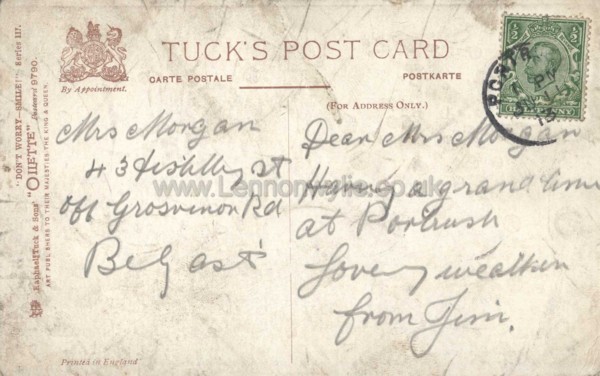 TUCK'S POST CARD
CARTE POSTALE
POSTKARTE
By Appointment.
(FOR ADDRESS ONLY.)
"DON'T WORRY—SMILE!" Series 117.
Raphael Tuck & Sons' "OILETTE" Postcard 9790.
ART PUBLISHERS TO THEIR MAJESTIES THE KING & QUEEN.
Mrs Morgan
43 St
off Grosvenor Rd
Belfast
Dear Mrs Morgan
Having a grand time
at Portrush
Lovely weather
from Jim.
Printed in England
PORTR
PM
13
www.Lennonwylie.co.uk